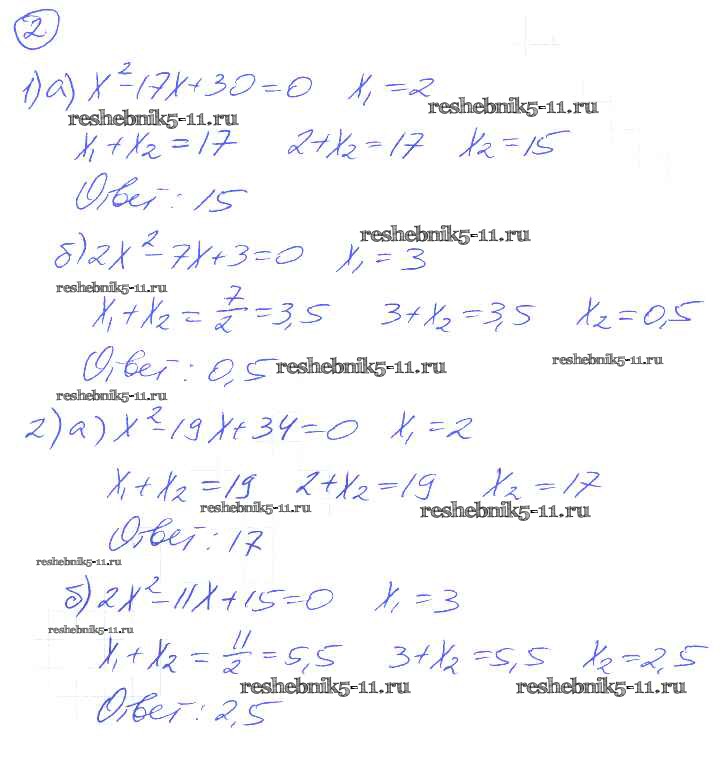 2
1) а) x² - 17x + 30 = 0   x₁ = 2
reshebnik5-11.ru   reshebnik5-11.ru
x₁ + x₂ = 17   2 + x₂ = 17   x₂ = 15
Ответ: 15
reshebnik5-11.ru
б) 2x² - 7x + 3 = 0   x₁ = 3
reshebnik5-11.ru
x₁ + x₂ = 7/2 = 3,5   3 + x₂ = 3,5   x₂ = 0,5
Ответ: 0,5   reshebnik5-11.ru   reshebnik5-11.ru
reshebnik5-11.ru
2) а) x² - 19x + 34 = 0   x₁ = 2
x₁ + x₂ = 19   2 + x₂ = 19   x₂ = 17
reshebnik5-11.ru   reshebnik5-11.ru
Ответ: 17
reshebnik5-11.ru
б) 2x² - 11x + 15 = 0   x₁ = 3
reshebnik5-11.ru
x₁ + x₂ = 11/2 = 5,5   3 + x₂ = 5,5   x₂ = 2,5
reshebnik5-11.ru   reshebnik5-11.ru
Ответ: 2,5